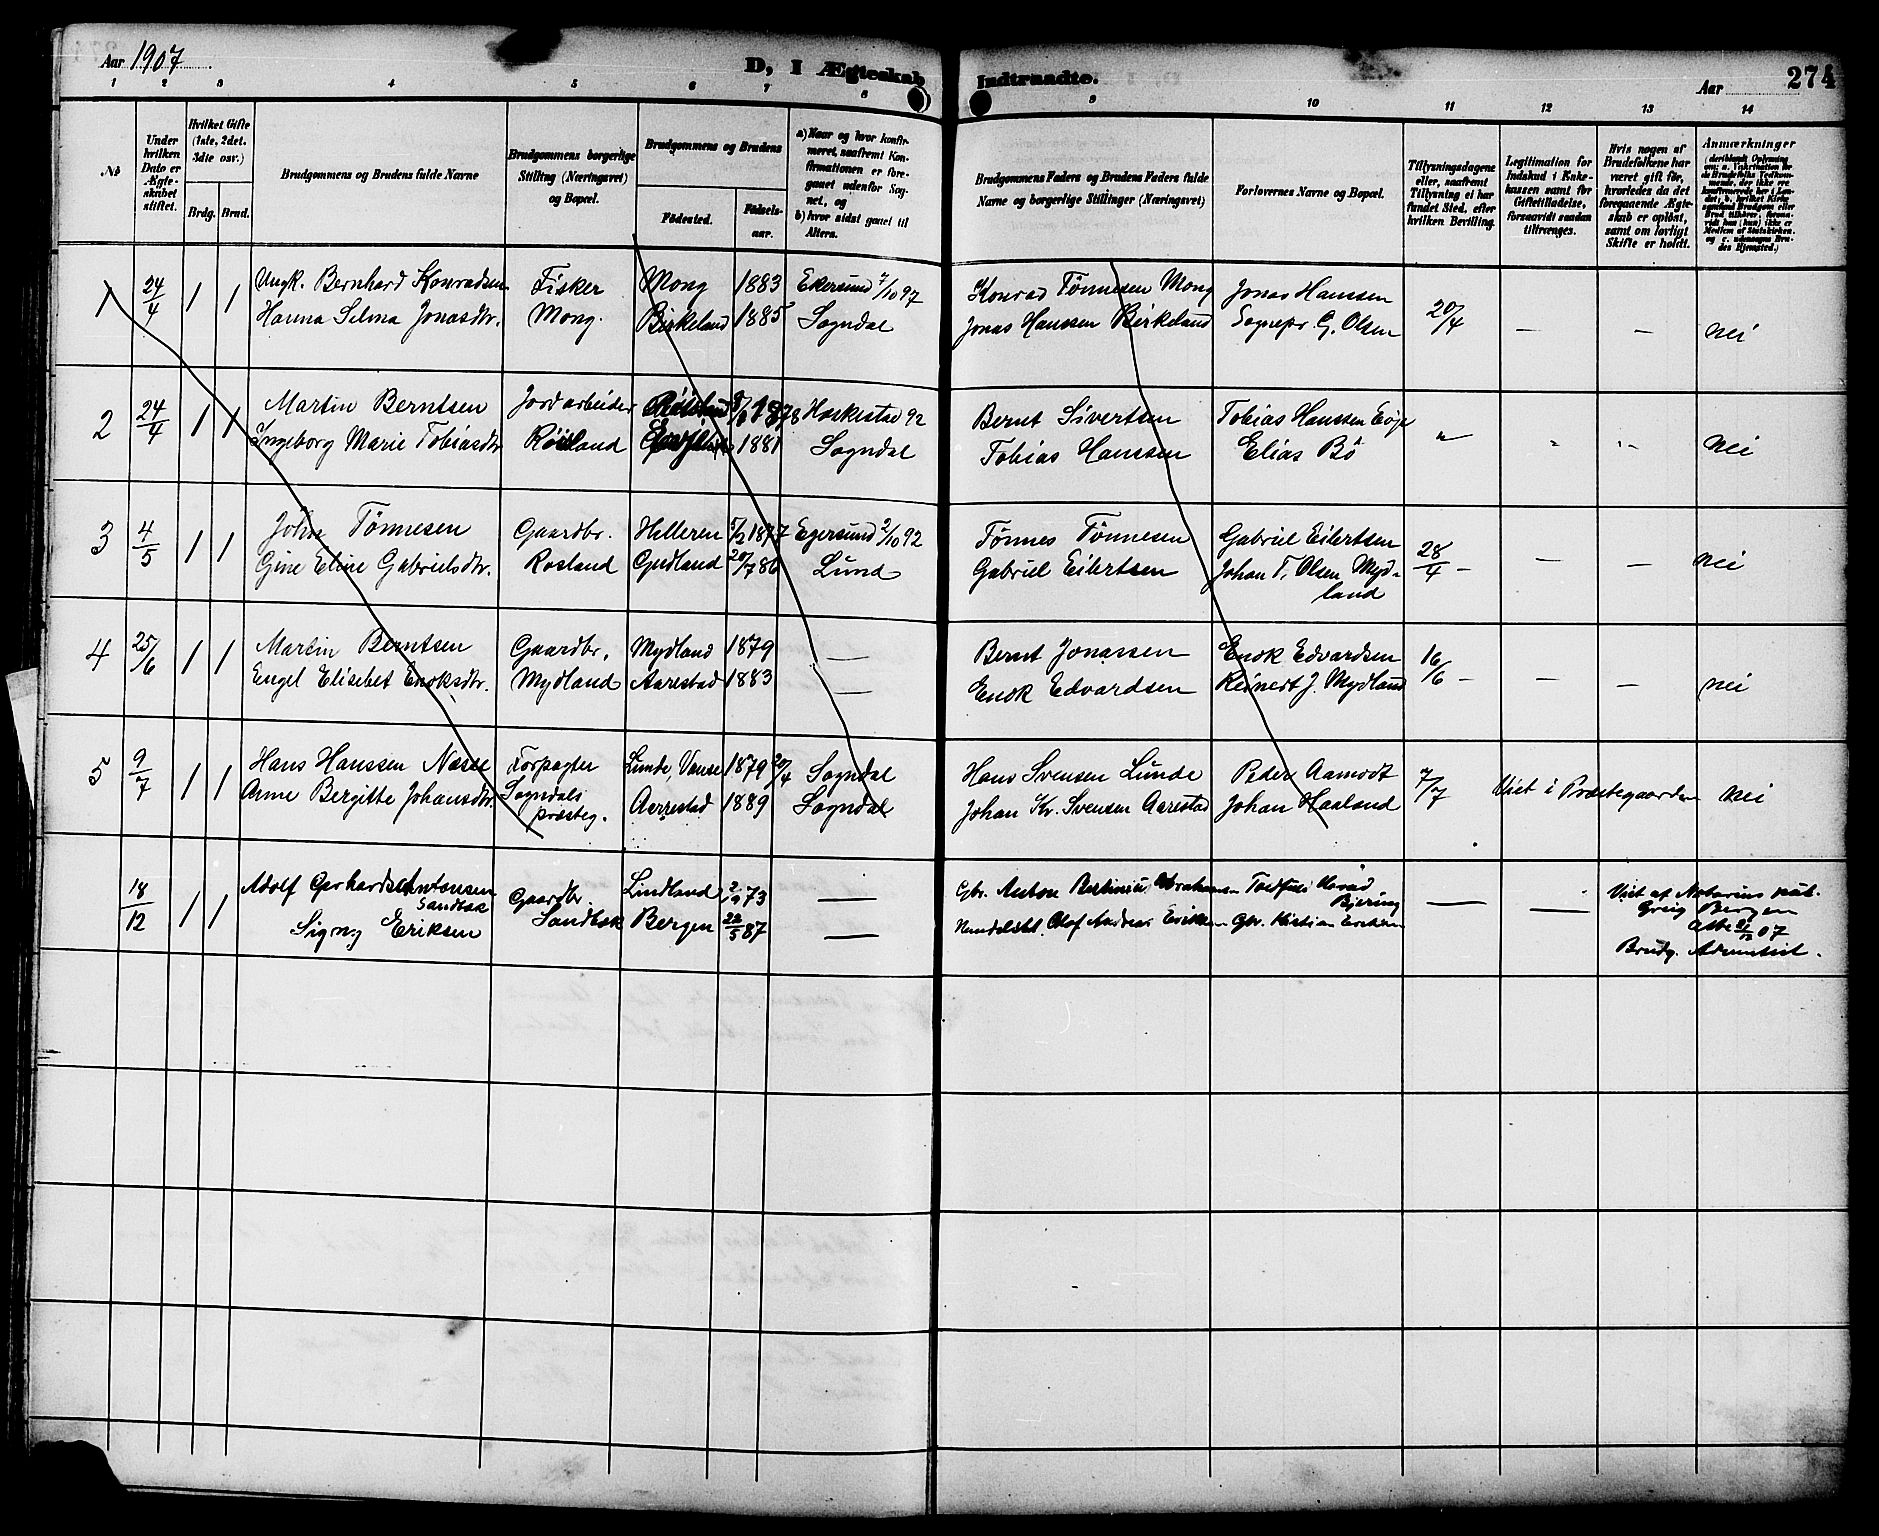 Aar 1907
D, I Ægteskab Indtraadte.
Aar
274
1 2 3 4 5 6 7 8 9 10 11 12 13 14
No
Under hvilken Dato er Ægteskabet stiftet.
Hvilket Gifte (1ste, 2det, 3die osv.)
Brdg. Brud.
Brudgommens og Brudens fulde Navne
Brudgommens borgerlige Stilling (Næringsvei) og Bopæl.
Brudgommens og Brudens
Fødested. Fødselsaar.
a) Naar og hvor konfirmeret, saafremt Konfirmationen er foregaaet udenfor Sognet, og b) hvor sidst gaaet til Alters.
Brudgommens Faders og Brudens Faders fulde Navne og borgerlige Stillinger (Næringsvei)
Forlovernes Navne og Bopæl.
Tillysningsdagene eller, saafremt Tillysning ei har fundet Sted, efter hvilken Bevilling.
Legitimation for Indskud i Enkekassen samt for Giftetilladelse, forsaavidt saadan tiltrænges.
Hvis nogen af Brudefolkene har været gift før, hvorledes da det foregaaende Ægteskab er opløst, samt om lovligt Skifte er holdt.
Anmærkninger
1 24/4 1 1 Ungk. Bernhard Konradsen Fisker Mong 1883 Ekersund 4/10 97 Konrad Tønnesen Mong Jonas Hanssen 20/4 — — nei
Hanna Selma Jonasdtr. Mong. Birkeland 1885 Sogndal Jonas Hanssen Birkeland Sognepr. G. Olsen
2 24/4 1 1 Martin Berntsen Jordarbeider 1878 Heskestad 92 Bernt Sivertsen Tobias Hanssen Eøje " " " nei
Ingeborg Marie Tobiasdtr. Røisland 1881 Sogndal Tobias Hanssen Elias Bø
3 4/5 1 1 John Tønnesen Gaardbr. Helleren 1877 Egersund 2/10 92 Tønnes Tønnesen Gabriel Eilertsen 28/4 — — — nei
Gine Eline Gabrielsdtr. Rosland Gydland 20/7 86 Lund Gabriel Eilertsen Johan T. Olsen Mydland
4 25/6 1 1 Martin Berntsen Gaardbr. Mydland 1879 — Bernt Jonassen Enok Edvardsen 16/6 — — — nei
Engel Elisebet Enoksdtr. Mydland Aarestad 1883 — Enok Edvardsen Reinert J. Mydland
5 9/7 1 1 Hans Hanssen Næsse Forpagter Lunde, Vanse 1879 20/4 Sogndal Hans Svensen Lunde Peder Aamodt 7/7 Viet i Præstegaarden nei
Anne Bergitte Johansdtr. Sogndals præsteg. Aarrestad 1889 Sogndal Johan Kr. Svensen Aarestad Johan Haaland
18/12 1 1 Adolf Gerhards Antonsen Sandbæk Gaardbr. Lindland 73 — Gbr. Anton Bertinius Abrahamsen — — Viet af Notarius publ. Greig Bergen
Signy Eriksen Sandbæk Bergen 22/5 87 — Olaf Andreas Eriksen Gbr. Kristian Eriksen Att 07
Brudg. Adventist.